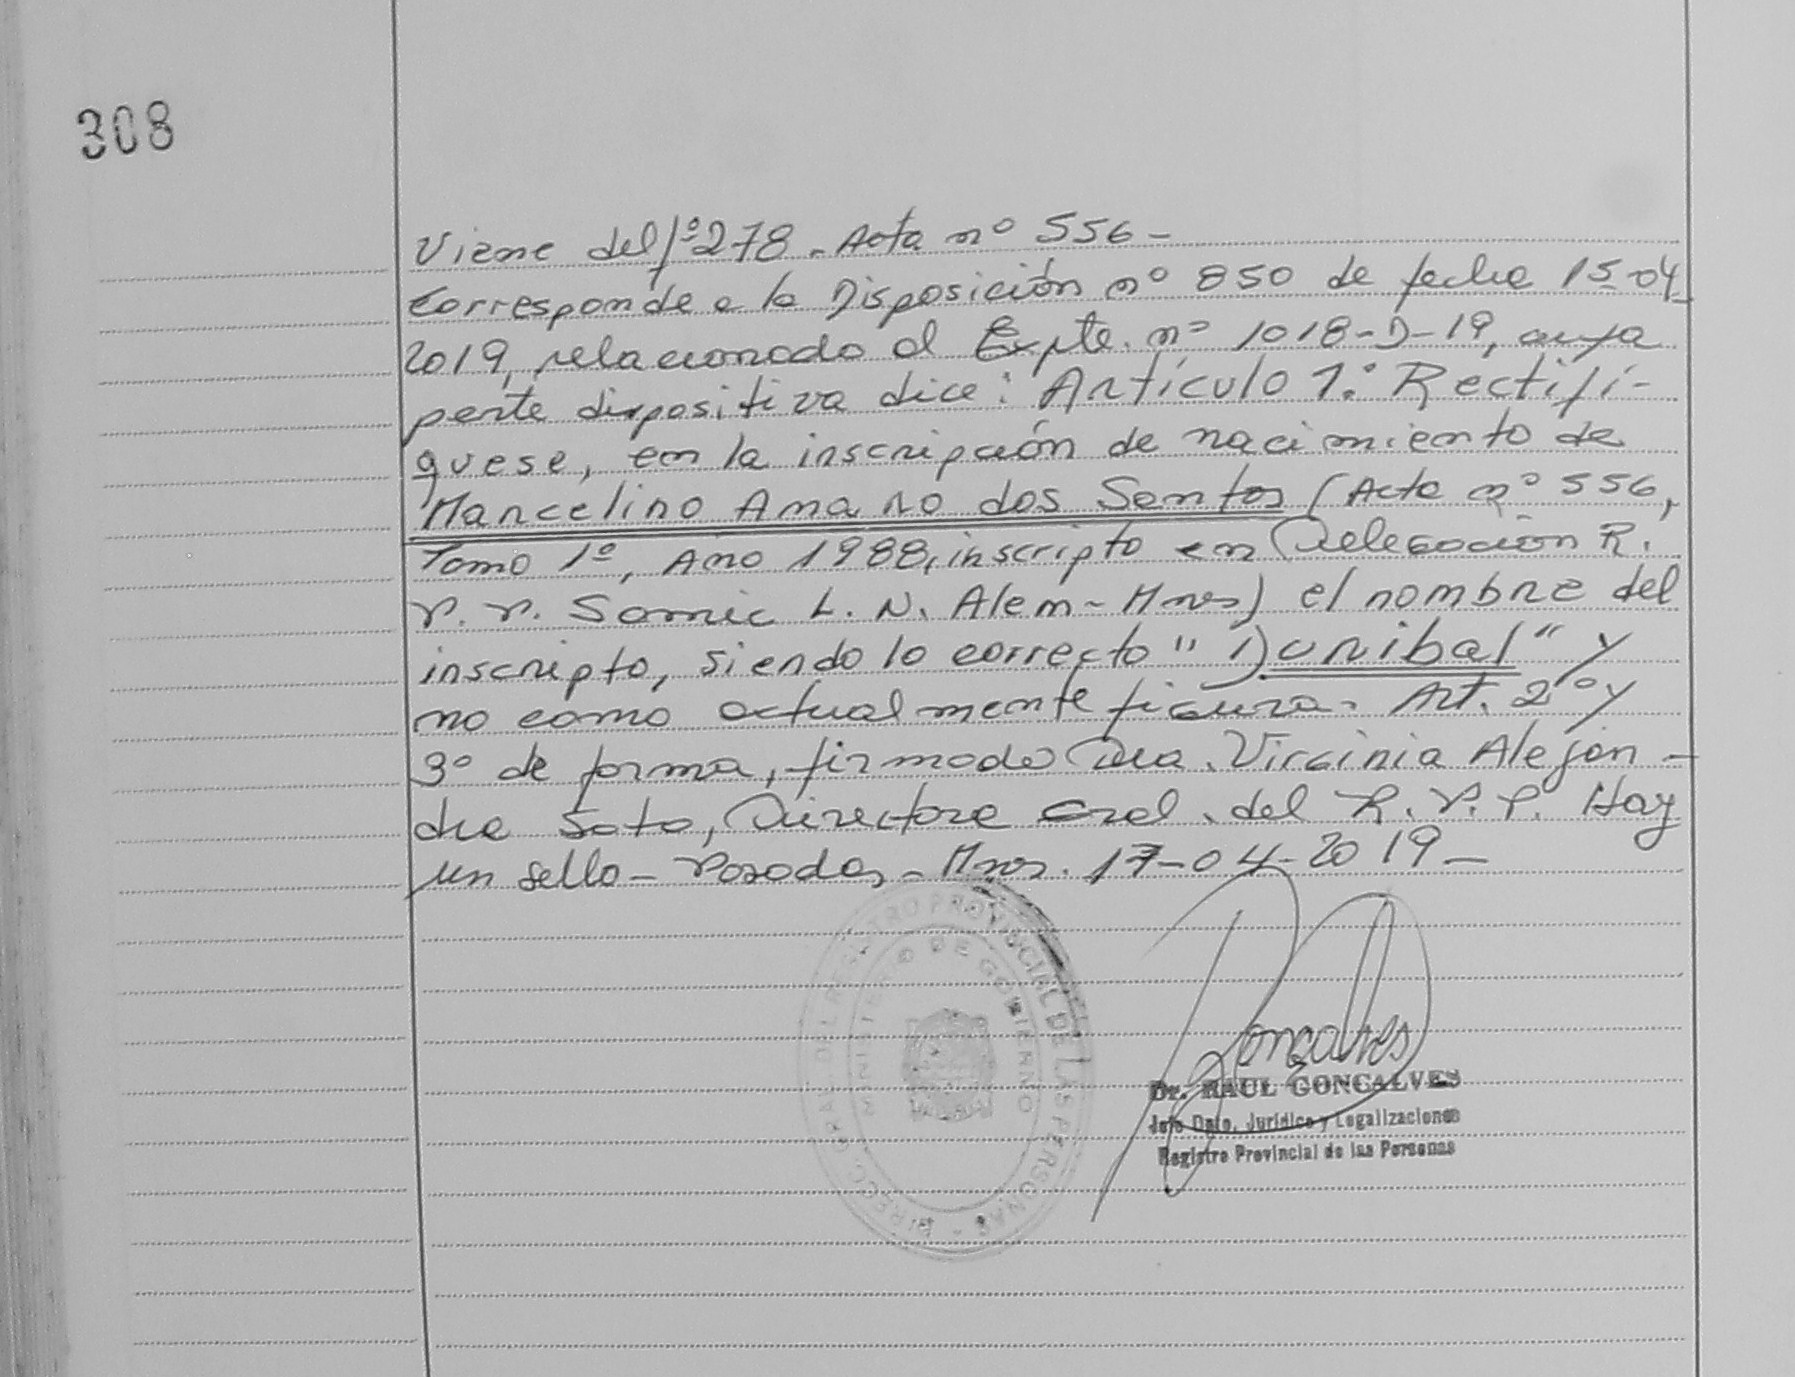 308
Viene del fº 278. Acta nº 556-
Corresponde a la Disposición nº 850 de fecha 15-04-
2019, relacionado al Expte. nº 1018-D-19, cuya
parte dispositiva dice: Artículo 1º. Rectifí-
quese, en la inscripción de nacimiento de
Marcelino Amaro dos Santos (Acta nº 556,
Tomo 1º, Año 1988, inscripto en Delegación R.
P. P. Samic L. N. Alem - Mnes) el nombre del
inscripto, siendo lo correcto "Dunibal" y
no como actualmente figura. Art. 2º y
3º de forma, firmado Dra. Virginia Alejan-
dra Soto, Directora Gral. del R. P. P. Hay
un sello - Posadas - Mnes. 17-04-2019-
DIRECC. GRAL. DEL REGISTRO PROVINCIAL DE LAS PERSONAS -
MINISTERIO DE GOBIERNO
Gonçalves
Dr. RAUL GONÇALVES
Jefe Dpto. Jurídico y Legalizaciones
Registro Provincial de las Personas